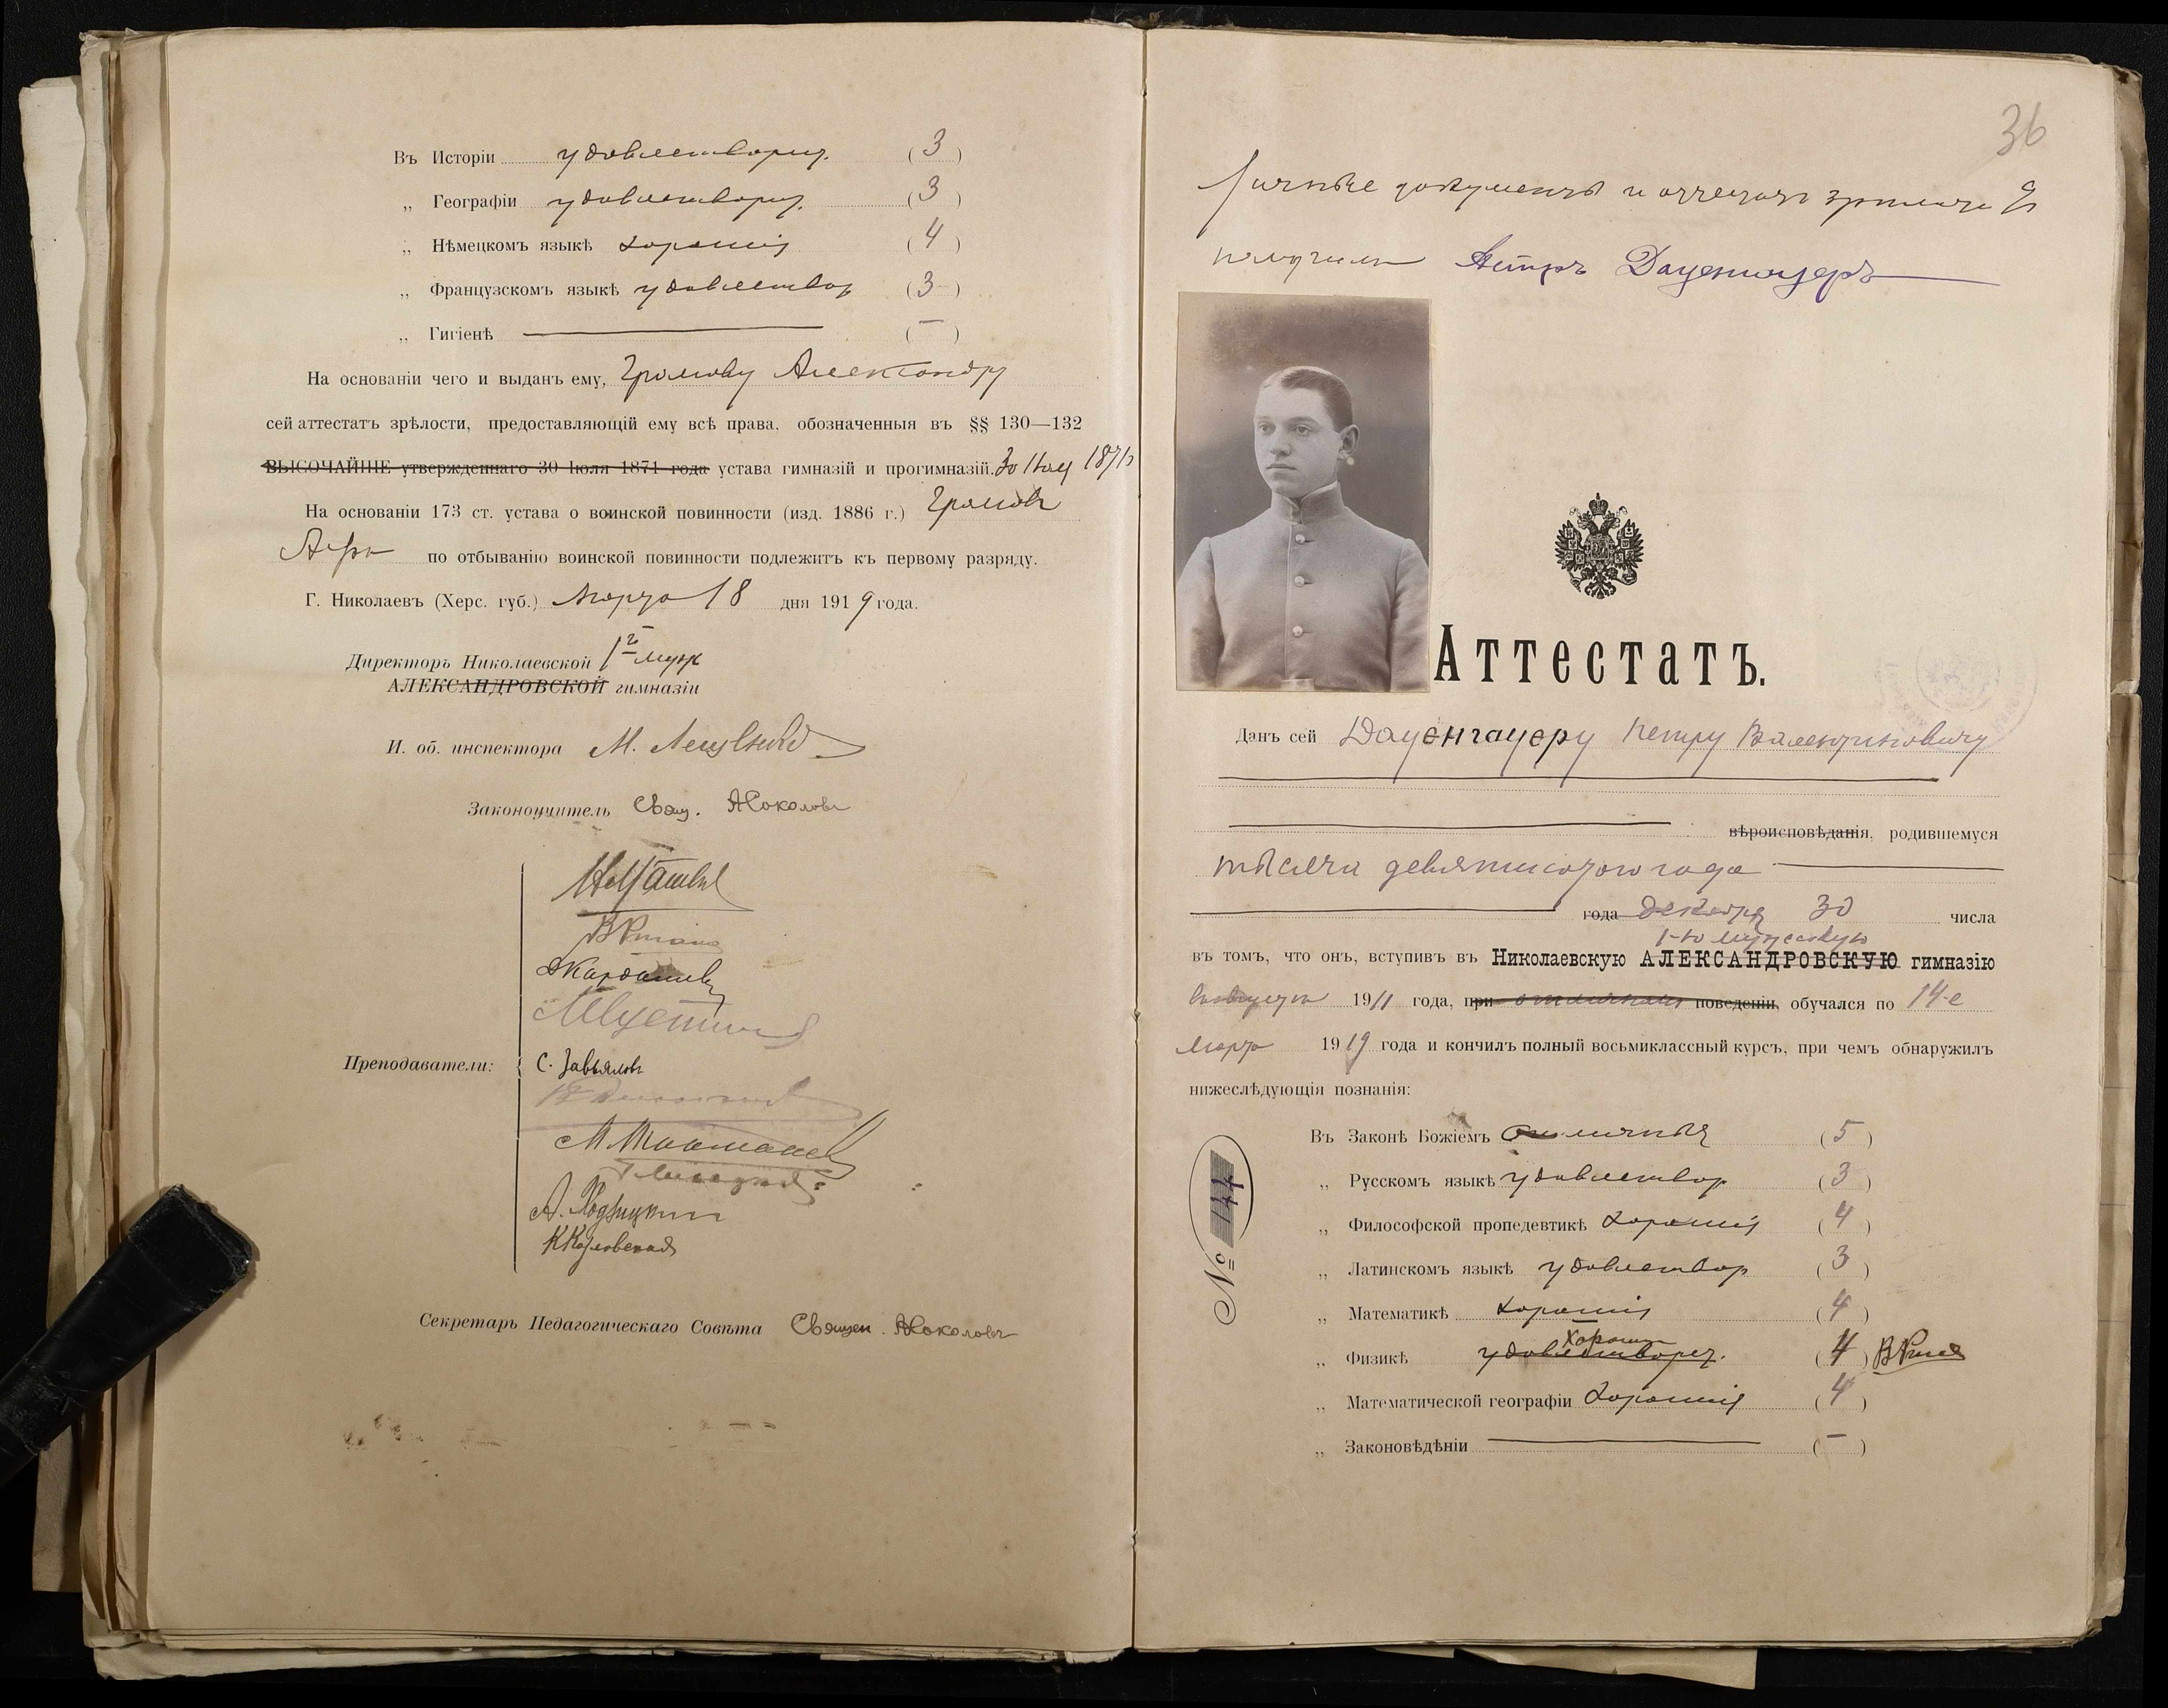 Въ Исторіи удовлетворит. (3)
„ Географіи удовлетворит. (3)
„ Нѣмецкомъ языкѣ хорошія (4)
„ Французскомъ языкѣ удовлетвор (3)
„ Гигіенѣ — (—)
На основаніи чего и выданъ ему, Громову Александру
сей аттестатъ зрѣлости, предоставляющій ему всѣ права, обозначенныя въ §§ 130—132
ВЫСОЧАЙШЕ утвержденнаго 30 Іюля 1871 года устава гимназій и прогимназій. 30 Іюля 1871 г
На основаніи 173 ст. устава о воинской повинности (изд. 1886 г.) Громовъ
по отбыванію воинской повинности подлежитъ къ первому разряду.
Г. Николаевъ (Херс. губ.) Марта 18 дня 1919 года.
Директоръ Николаевской 1й муж
АЛЕКСАНДРОВСКОЙ гимназіи
И. об. инспектора М.
Законоучитель Свящ. АСоколовъ
Преподаватели:
С. Завьяловъ
А. Ходзицкій
ККозловская
Секретарь Педагогическаго Совѣта Священ. АСоколовъ
36
Личные документы и аттестатъ зрѣлости
получилъ Петръ Дауенгауеръ
Аттестатъ.
Данъ сей Дауенгауеру Петру Валентиновичу
вѣроисповѣданія, родившемуся
тысяча девятисотого года
года Декабря 30 числа
1-ю мужескую
въ томъ, что онъ, вступивъ въ Николаевскую АЛЕКСАНДРОВСКУЮ гимназію
1911 года, при отличномъ поведеніи, обучался по 14-е
Марта 1919 года и кончилъ полный восьмиклассный курсъ, при чемъ обнаружилъ
нижеслѣдующія познанія:
Въ Законѣ Божіемъ отличныя (5)
„ Русскомъ языкѣ удовлетвор (3)
„ Философской пропедевтикѣ хорошія (4)
„ Латинскомъ языкѣ удовлетвор (3)
„ Математикѣ хорошія (4)
хорошія
„ Физикѣ удовлетворит. (4)
„ Математической географіи хорошія (4)
„ Законовѣдѣніи — (—)
№ 144